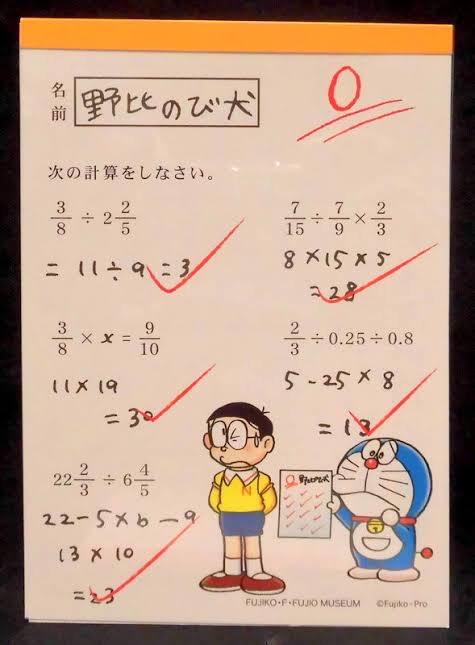 名前 野比のび犬
0
次の計算をしなさい。
3/8 ÷ 2 2/5
= 11 ÷ 9 = 3
7/15 ÷ 7/9 × 2/3
8 × 15 × 5
= 28
3/8 × x = 9/10
11 × 19
= 30
2/3 ÷ 0.25 ÷ 0.8
5 - 25 × 8
= 13
22 2/3 ÷ 6 4/5
22 - 5 × 6 - 9
13 × 10
= 23
N
0 野比のび犬
FUJIKO・F・FUJIO MUSEUM ©Fujiko-Pro